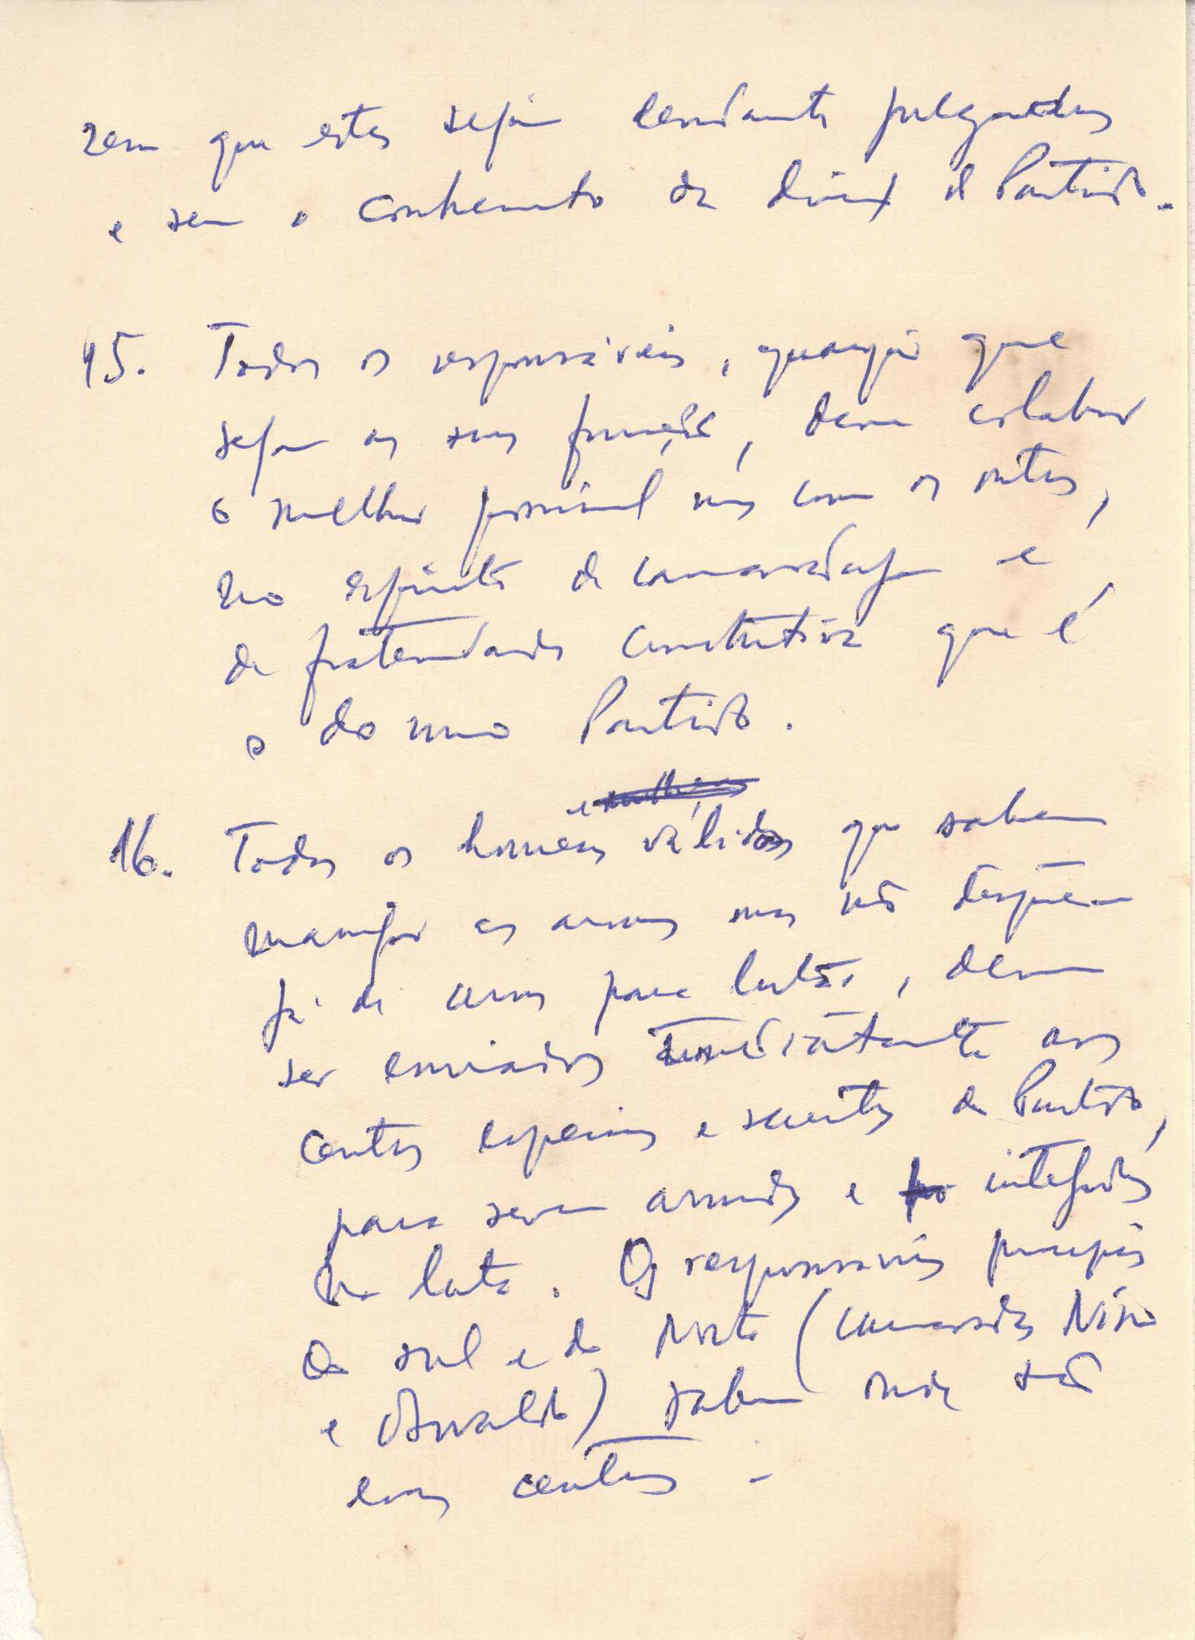 sem que estes sejam devidamente julgados
e sem o conhecimento da direcç do Partido.
15. Todos os responsáveis, quaisquer que
sejam as suas funções, devem colaborar
o melhor possível uns com os outros,
no espírito de camaradagem e
de fraternidade construtiva que é
o do nosso Partido.
16. Todos os homens e válidos que sabem
manejar as armas mas não dispõem
já de armas para lutar, devem
ser enviados imediatamente aos
centros especiais e secretos do Partido,
para serem armados e integrados
na luta. Os responsáveis principais
do sul e do Norte (camaradas Nino
e Osvaldo) sabem onde são
esses centros.